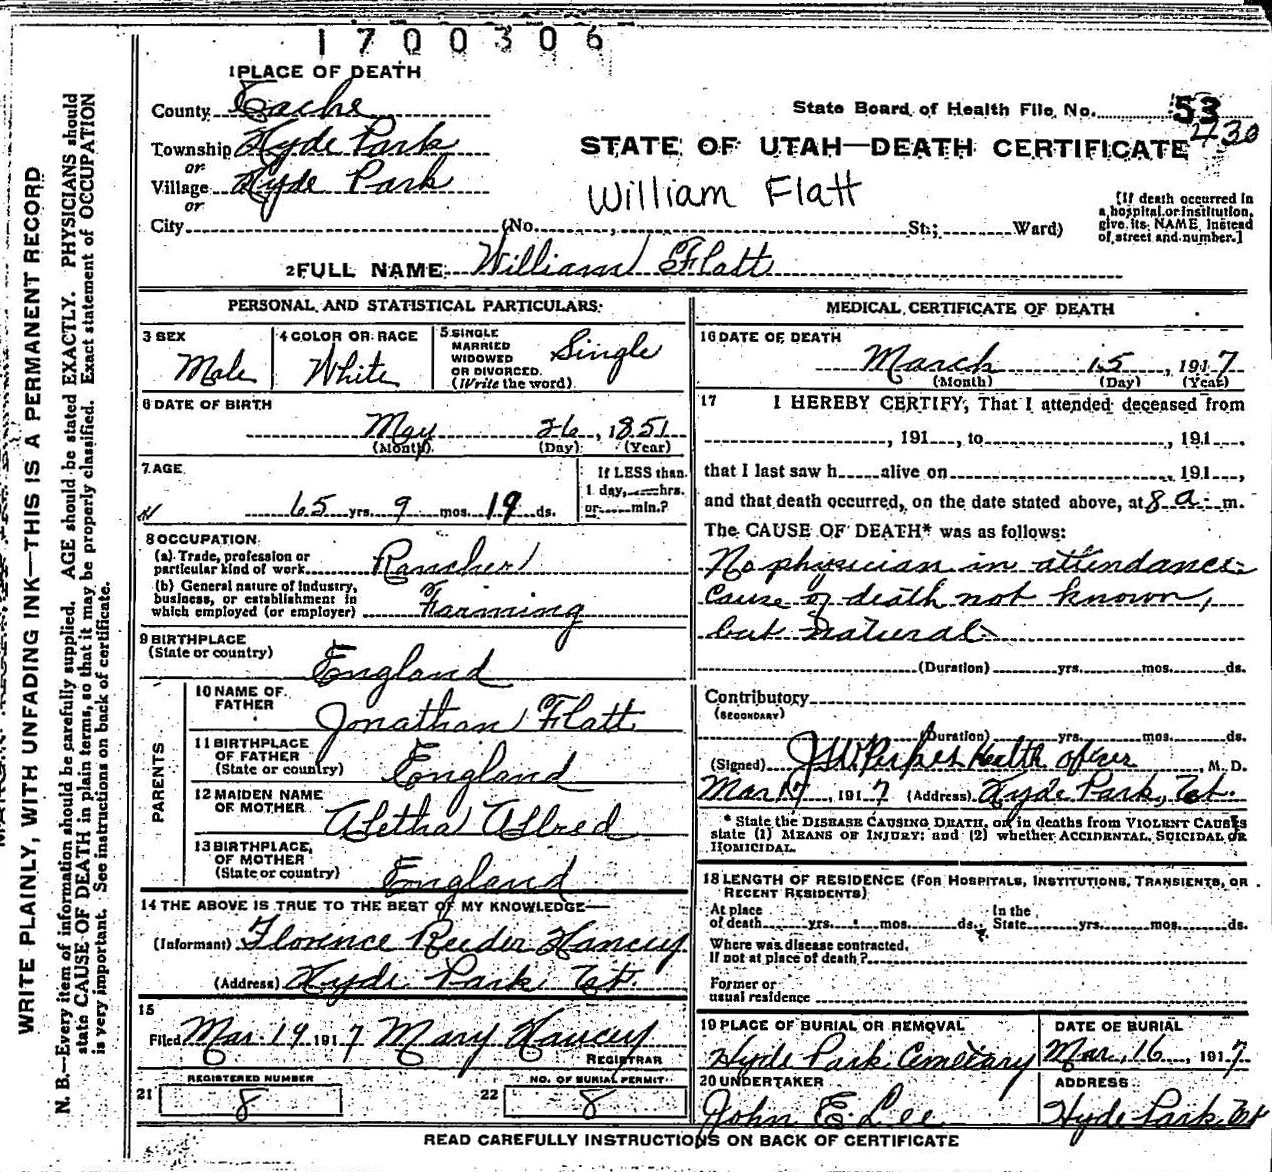 1700306
1 PLACE OF DEATH
County Cache
State Board of Health File No. 53
430
Township Hyde Park
or
Village Hyde Park
or
STATE OF UTAH—DEATH CERTIFICATE
William Flatt
[If death occurred in a hospital or institution, give its NAME instead of street and number.]
City (No. , St.; Ward)
2 FULL NAME William Flatt
PERSONAL AND STATISTICAL PARTICULARS.
3 SEX
Male
4 COLOR OR RACE
White
5 SINGLE MARRIED WIDOWED OR DIVORCED. (Write the word)
Single
6 DATE OF BIRTH
May 26, 1851
(Month) (Day) (Year)
7. AGE
65 yrs. 9 mos. 19 ds.
If LESS than 1 day, hrs. or min.?
8 OCCUPATION
(a) Trade, profession or particular kind of work Rancher
(b) General nature of industry, business, or establishment in which employed (or employer) Farming
9 BIRTHPLACE
(State or country)
England
PARENTS
10 NAME OF FATHER
Jonathan Flatt
11 BIRTHPLACE OF FATHER (State or country)
England
12 MAIDEN NAME OF MOTHER
Aletha Allred
13 BIRTHPLACE, OF MOTHER (State or country)
England
14 THE ABOVE IS TRUE TO THE BEST OF MY KNOWLEDGE—
(Informant) Florence Reeder Hancey
(Address) Hyde Park Ut.
15
Filed Mar. 19 1917 Mary Hancey
REGISTRAR
21 REGISTERED NUMBER
8
22 NO. OF BURIAL PERMIT
8
MEDICAL CERTIFICATE OF DEATH
16 DATE OF DEATH
March 15, 1917
(Month) (Day) (Year)
17 I HEREBY CERTIFY, That I attended deceased from
, 191 , to , 191 ,
that I last saw h alive on , 191 ,
and that death occurred, on the date stated above, at 8 a. m.
The CAUSE OF DEATH* was as follows:
No physician in attendance
Cause of death not known,
but natural
(Duration) yrs. mos. ds.
Contributory
(SECONDARY)
(Duration) yrs. mos. ds.
(Signed) Health officer, M. D.
Mar 17, 1917 (Address) Hyde Park, Ut.
* State the DISEASE CAUSING DEATH, or, in deaths from VIOLENT CAUSES
state (1) MEANS OF INJURY; and (2) whether ACCIDENTAL, SUICIDAL OR
HOMICIDAL.
18 LENGTH OF RESIDENCE (FOR HOSPITALS, INSTITUTIONS, TRANSIENTS, OR
RECENT RESIDENTS)
At place of death yrs. mos. ds. In the State yrs. mos. ds.
Where was disease contracted,
If not at place of death?
Former or
usual residence
19 PLACE OF BURIAL OR REMOVAL
Hyde Park Cemetary
DATE OF BURIAL
Mar, 16, 1917
20 UNDERTAKER
John E Lee
ADDRESS
Hyde Park Ut
READ CAREFULLY INSTRUCTIONS ON BACK OF CERTIFICATE
WRITE PLAINLY, WITH UNFADING INK—THIS IS A PERMANENT RECORD
N. B.—Every item of information should be carefully supplied. AGE should be stated EXACTLY. PHYSICIANS should
state CAUSE OF DEATH in plain terms, so that it may be properly classified. Exact statement of OCCUPATION
is very important. See instructions on back of certificate.